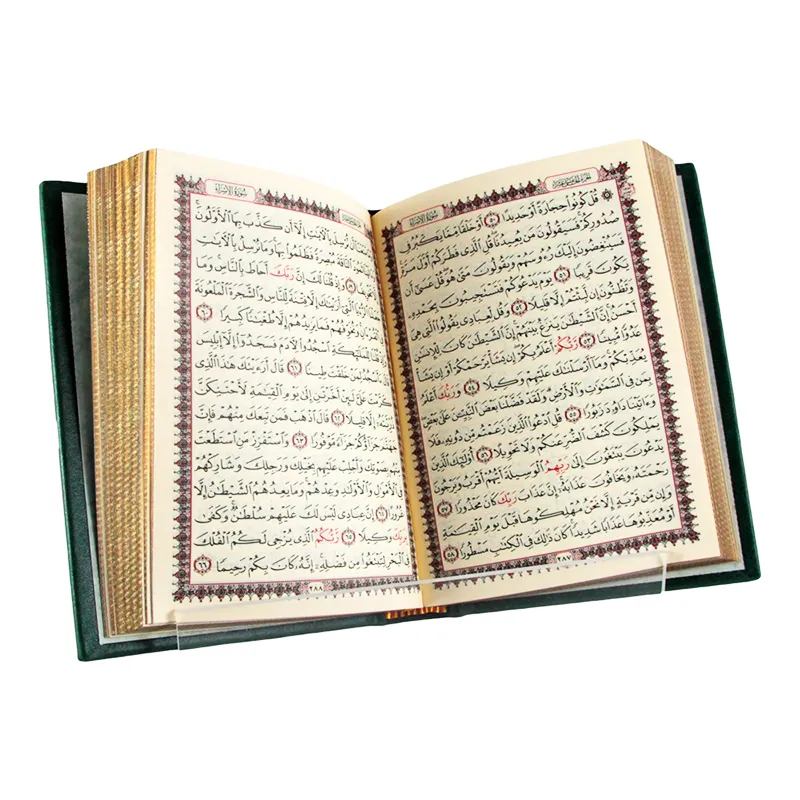 سُورَةُ الإِسْرَاءِ
۞ قُلْ كُونُوا۟ حِجَارَةً أَوْ حَدِيدًا ٥٠ أَوْ خَلْقًا مِّمَّا يَكْبُرُ فِى
صُدُورِكُمْ فَسَيَقُولُونَ مَن يُعِيدُنَا قُلِ ٱلَّذِى فَطَرَكُمْ أَوَّلَ مَرَّةٍ
فَسَيُنْغِضُونَ إِلَيْكَ رُءُوسَهُمْ وَيَقُولُونَ مَتَىٰ هُوَ قُلْ عَسَىٰٓ أَن
يَكُونَ قَرِيبًا ٥١ يَوْمَ يَدْعُوكُمْ فَتَسْتَجِيبُونَ بِحَمْدِهِۦ
وَتَظُنُّونَ إِن لَّبِثْتُمْ إِلَّا قَلِيلًا ٥٢ وَقُل لِّعِبَادِى يَقُولُوا۟ ٱلَّتِى هِىَ
أَحْسَنُ إِنَّ ٱلشَّيْطَٰنَ يَنزَغُ بَيْنَهُمْ إِنَّ ٱلشَّيْطَٰنَ كَانَ لِلْإِنسَٰنِ
عَدُوًّا مُّبِينًا ٥٣ رَّبُّكُمْ أَعْلَمُ بِكُمْ إِن يَشَأْ يَرْحَمْكُمْ أَوْ إِن يَشَأْ
يُعَذِّبْكُمْ وَمَآ أَرْسَلْنَٰكَ عَلَيْهِمْ وَكِيلًا ٥٤ وَرَبُّكَ أَعْلَمُ
بِمَن فِى ٱلسَّمَٰوَٰتِ وَٱلْأَرْضِ وَلَقَدْ فَضَّلْنَا بَعْضَ ٱلنَّبِيِّـۧنَ عَلَىٰ بَعْضٍ
وَءَاتَيْنَا دَاوُۥدَ زَبُورًا ٥٥ قُلِ ٱدْعُوا۟ ٱلَّذِينَ زَعَمْتُم مِّن دُونِهِۦ فَلَا
يَمْلِكُونَ كَشْفَ ٱلضُّرِّ عَنكُمْ وَلَا تَحْوِيلًا ٥٦ أُو۟لَٰٓئِكَ ٱلَّذِينَ
يَدْعُونَ يَبْتَغُونَ إِلَىٰ رَبِّهِمُ ٱلْوَسِيلَةَ أَيُّهُمْ أَقْرَبُ وَيَرْجُونَ
رَحْمَتَهُۥ وَيَخَافُونَ عَذَابَهُۥٓ إِنَّ عَذَابَ رَبِّكَ كَانَ مَحْذُورًا ٥٧
وَإِن مِّن قَرْيَةٍ إِلَّا نَحْنُ مُهْلِكُوهَا قَبْلَ يَوْمِ ٱلْقِيَٰمَةِ
أَوْ مُعَذِّبُوهَا عَذَابًا شَدِيدًا كَانَ ذَٰلِكَ فِى ٱلْكِتَٰبِ مَسْطُورًا ٥٨
٢٨٧
سُورَةُ الإِسْرَاءِ
أَن نُّرْسِلَ بِٱلْـَٔايَٰتِ إِلَّآ أَن كَذَّبَ بِهَا ٱلْأَوَّلُونَ
ٱلنَّاقَةَ مُبْصِرَةً فَظَلَمُوا۟ بِهَا وَمَا نُرْسِلُ بِٱلْـَٔايَٰتِ
٥٩ وَإِذْ قُلْنَا لَكَ إِنَّ رَبَّكَ أَحَاطَ بِٱلنَّاسِ وَمَا
ٱلَّتِىٓ أَرَيْنَٰكَ إِلَّا فِتْنَةً لِّلنَّاسِ وَٱلشَّجَرَةَ ٱلْمَلْعُونَةَ
وَنُخَوِّفُهُمْ فَمَا يَزِيدُهُمْ إِلَّا طُغْيَٰنًا كَبِيرًا ٦٠
لِلْمَلَٰٓئِكَةِ ٱسْجُدُوا۟ لِـَٔادَمَ فَسَجَدُوٓا۟ إِلَّآ إِبْلِيسَ
لِمَنْ خَلَقْتَ طِينًا ٦١ قَالَ أَرَءَيْتَكَ هَٰذَا ٱلَّذِى
لَئِنْ أَخَّرْتَنِ إِلَىٰ يَوْمِ ٱلْقِيَٰمَةِ لَأَحْتَنِكَنَّ
إِلَّا قَلِيلًا ٦٢ قَالَ ٱذْهَبْ فَمَن تَبِعَكَ مِنْهُمْ فَإِنَّ
جَزَآؤُكُمْ جَزَآءً مَّوْفُورًا ٦٣ وَٱسْتَفْزِزْ مَنِ ٱسْتَطَعْتَ
مِنْهُم بِصَوْتِكَ وَأَجْلِبْ عَلَيْهِم بِخَيْلِكَ وَرَجِلِكَ وَشَارِكْهُمْ
فِى ٱلْأَمْوَٰلِ وَٱلْأَوْلَٰدِ وَعِدْهُمْ وَمَا يَعِدُهُمُ ٱلشَّيْطَٰنُ إِلَّا
غُرُورًا ٦٤ إِنَّ عِبَادِى لَيْسَ لَكَ عَلَيْهِمْ سُلْطَٰنٌ وَكَفَىٰ
بِرَبِّكَ وَكِيلًا ٦٥ رَّبُّكُمُ ٱلَّذِى يُزْجِى لَكُمُ ٱلْفُلْكَ
فِى ٱلْبَحْرِ لِتَبْتَغُوا۟ مِن فَضْلِهِۦٓ إِنَّهُۥ كَانَ بِكُمْ رَحِيمًا ٦٦
٢٨٨